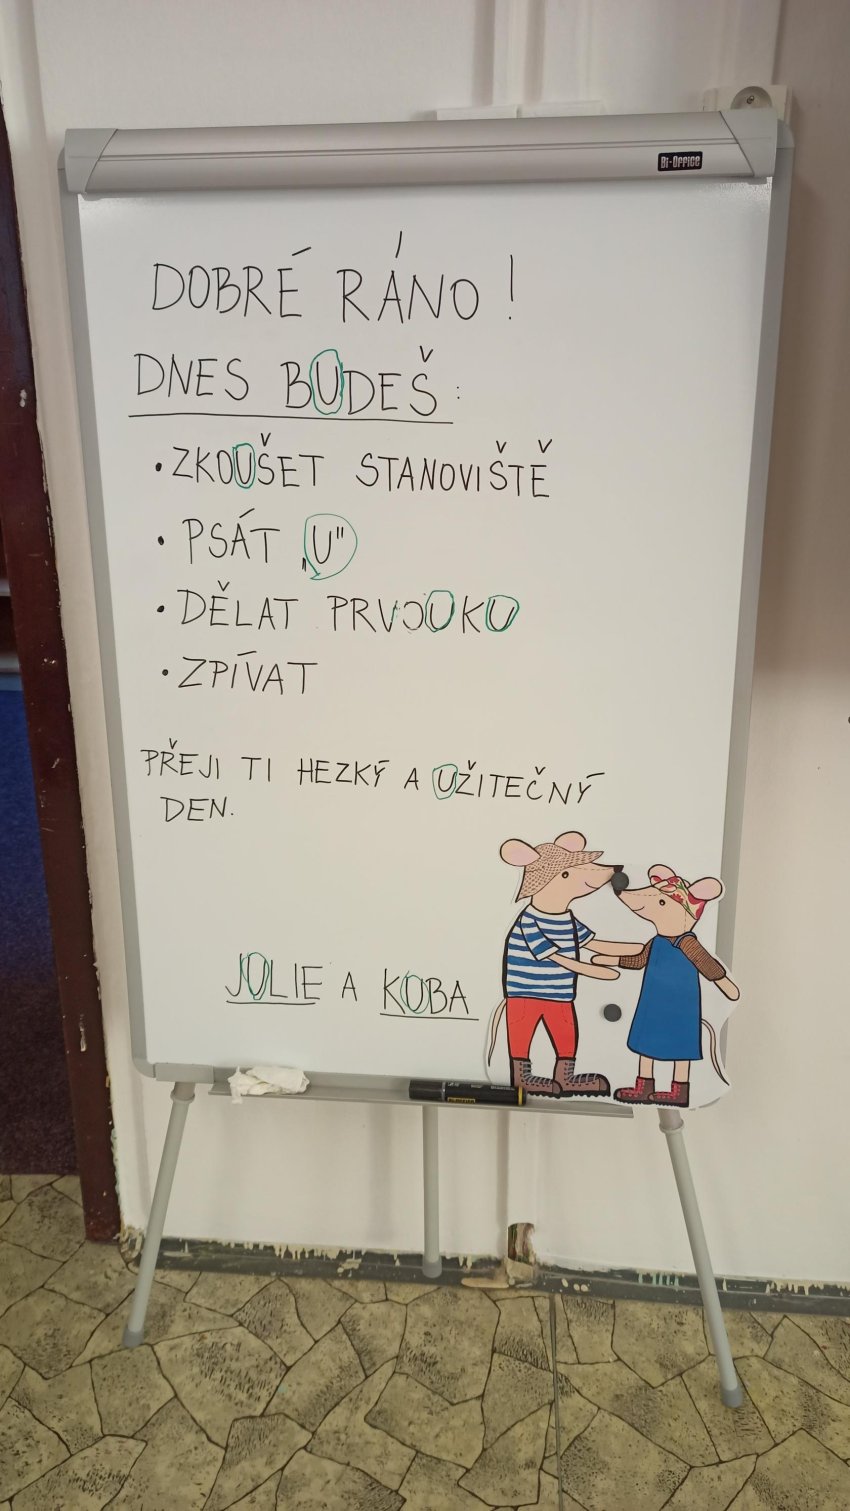 Bi-Office
DOBRÉ RÁNO!
DNES BUDEŠ:
• ZKOUŠET STANOVIŠTĚ
• PSÁT „U"
• DĚLAT PRVOUKU
• ZPÍVAT
PŘEJI TI HEZKÝ A UŽITEČNÝ
DEN.
JOLIE A KOBA